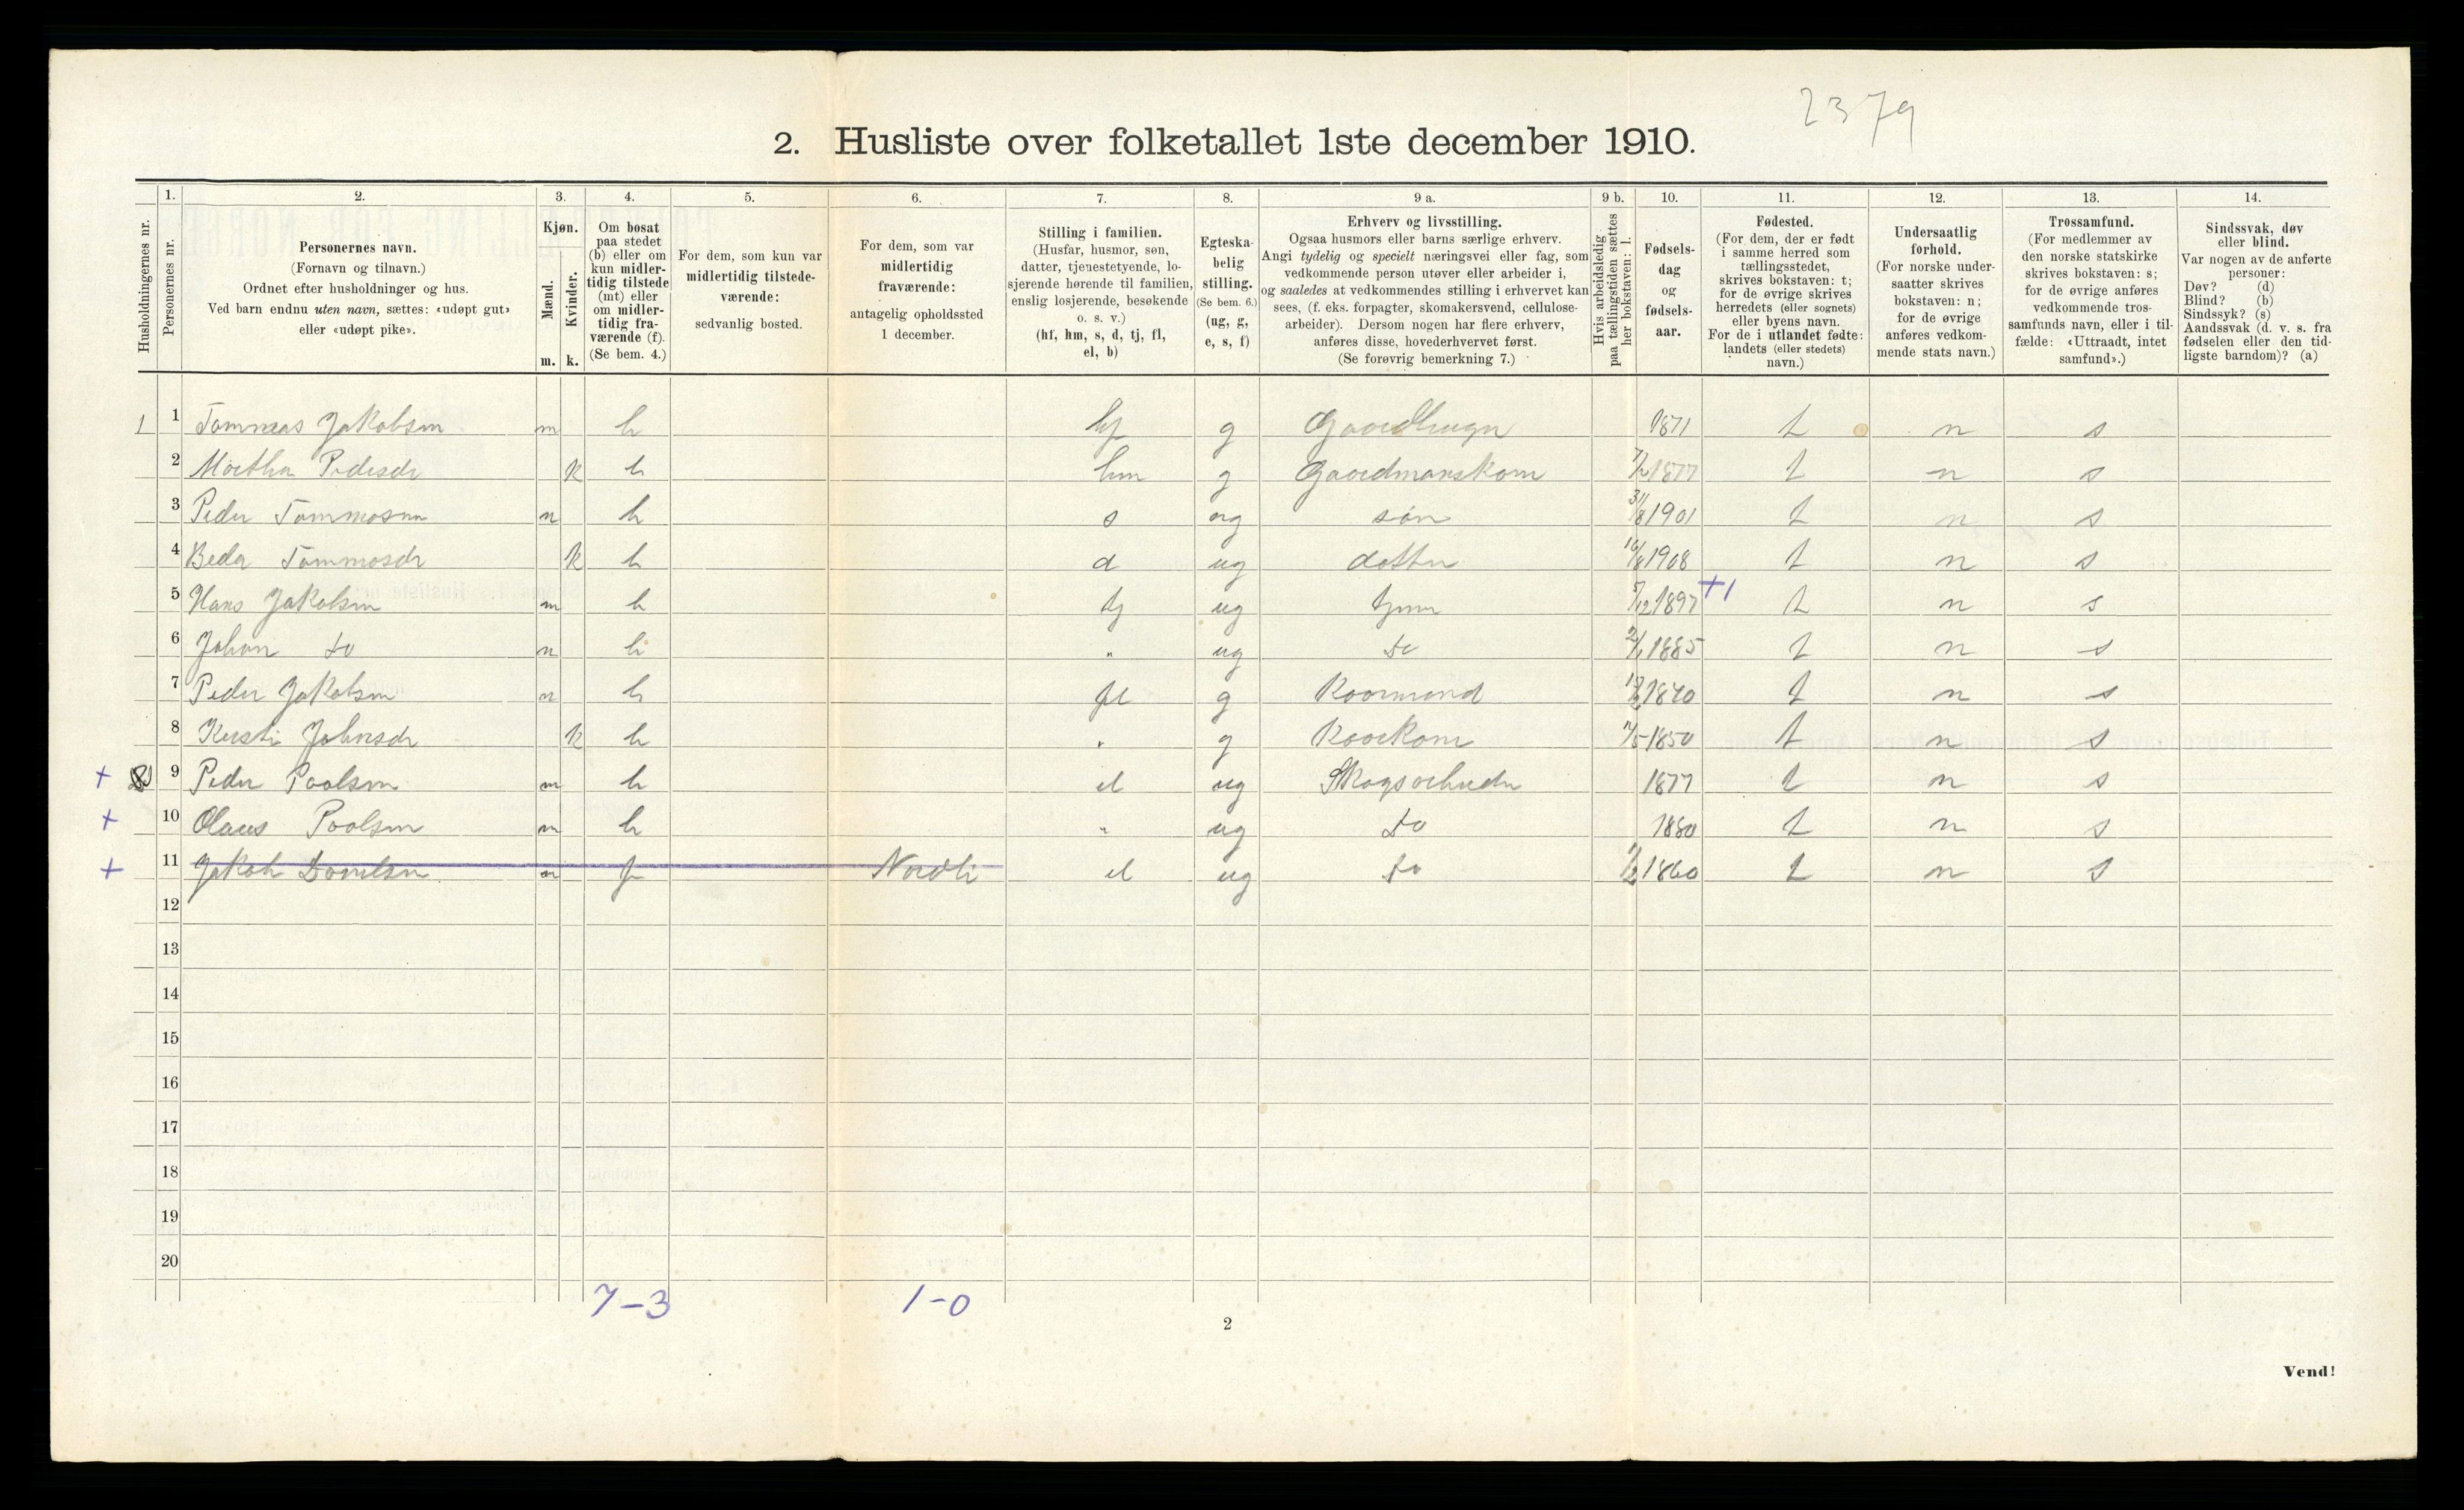 2379
2. Husliste over folketallet 1ste december 1910.
1. 2. 3. 4. 5. 6. 7. 8. 9 a. 9 b. 10. 11. 12. 13. 14.
Husholdningernes nr.
Personernes nr.
Personernes navn.
(Fornavn og tilnavn.)
Ordnet efter husholdninger og hus.
Ved barn endnu uten navn, sættes: «udøpt gut»
eller «udøpt pike».
Kjøn.
Mænd.
Kvinder.
m. k.
Om bosat
paa stedet
(b) eller om
kun midler-
tidig tilstede
(mt) eller
om midler-
tidig fra-
værende (f).
(Se bem. 4.)
For dem, som kun var
midlertidig tilstede-
værende:
sedvanlig bosted.
For dem, som var
midlertidig
fraværende:
antagelig opholdssted
1 december.
Stilling i familien.
(Husfar, husmor, søn,
datter, tjenestetyende, lo-
sjerende hørende til familien,
enslig losjerende, besøkende
o. s. v.)
(hf, hm, s, d, tj, fl,
el, b)
Egteska-
belig
stilling.
(Se bem. 6.)
(ug, g,
e, s, f)
Erhverv og livsstilling.
Ogsaa husmors eller barns særlige erhverv.
Angi tydelig og specielt næringsvei eller fag, som
vedkommende person utøver eller arbeider i,
og saaledes at vedkommendes stilling i erhvervet kan
sees, (f. eks. forpagter, skomakersvend, cellulose-
arbeider). Dersom nogen har flere erhverv,
anføres disse, hovederhvervet først.
(Se forøvrig bemerkning 7.)
Hvis arbeidsledig
paa tællingstiden sættes
her bokstaven: l.
Fødsels-
dag
og
fødsels-
aar.
Fødested.
(For dem, der er født
i samme herred som
tællingsstedet,
skrives bokstaven: t;
for de øvrige skrives
herredets (eller sognets)
eller byens navn.
For de i utlandet fødte:
landets (eller stedets)
navn.)
Undersaatlig
forhold.
(For norske under-
saatter skrives
bokstaven: n;
for de øvrige
anføres vedkom-
mende stats navn.)
Trossamfund.
(For medlemmer av
den norske statskirke
skrives bokstaven: s;
for de øvrige anføres
vedkommende tros-
samfunds navn, eller i til-
fælde: «Uttraadt, intet
samfund».)
Sindssvak, døv
eller blind.
Var nogen av de anførte
personer:
Døv? (d)
Blind? (b)
Sindssyk? (s)
Aandssvak (d. v. s. fra
fødselen eller den tid-
ligste barndom)? (a)
1 1 Tommas Jakobsen m b hf g 1871 t n s
2 Martha Pedersdr k b hm g Gaardmanskone 1877 t n s
3 Peder Tommasen m b s ug søn 31/8 1901 t n s
4 Beda Tommasdr k b d ug datter 16/8 1908 t n s
5 Hans Jakobsen m b tj ug 5/12 1897 +1 t n s
6 Johan do m b " ug do 2/1 1885 t n s
7 Peder Jakobsen m b fl g Kaarmand 1840 t n s
8 Kirsti Johnsdr k b " g Kaarkone 1/5 1850 t n s
+ 9 Peder Paalsen m b el ug Skogsarbeider 1877 t n s
+ 10 Olaus Paalsen m b " ug do 1880 t n s
+ 11 Jakob Danielsen m f Nordli el ug do 1/2 1860 t n s
12
13
14
15
16
17
18
19
20
7-3 1-0
2
Vend!